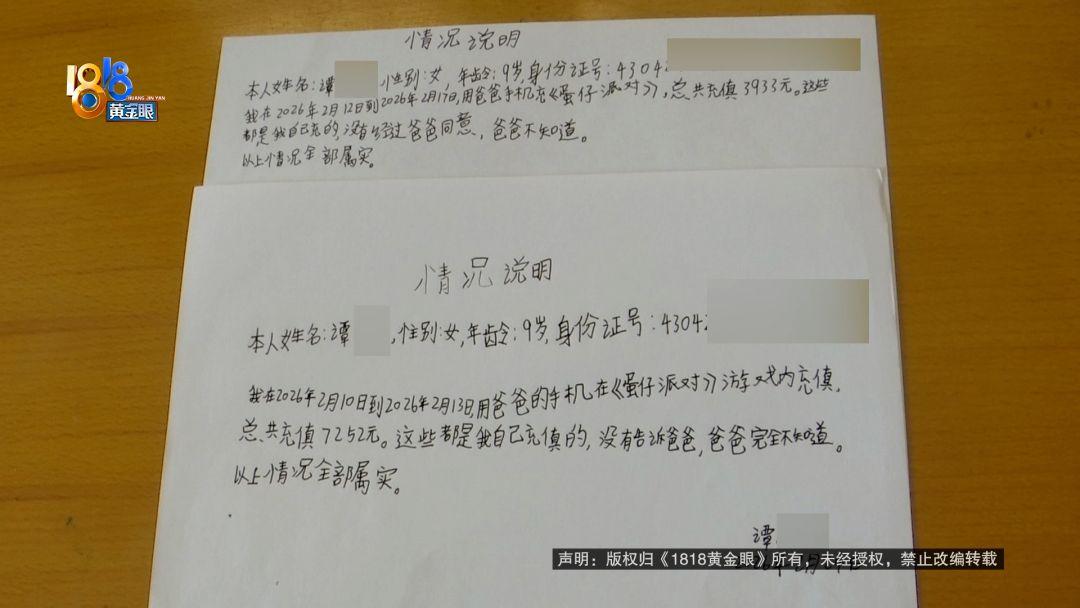 1818
HUANG JIN YAN
黄金眼
情况说明
本人姓名:谭
,性别:女,年龄:9岁,身份证号:4304
我在2026年2月12日到2026年2月17日,用爸爸手机充《蛋仔派对》,总共充填3933元。这些
都是我自己充的,没有经过爸爸同意,爸爸不知道。
以上情况全部属实。
情况说明
本人姓名:谭
,性别:女,年龄:9岁,身份证号:4304
我在2026年2月10日到2026年2月13日,用爸爸的手机在《蛋仔派对》游戏内充填,
总共充填7252元。这些都是我自己充填的,没有告诉爸爸,爸爸完全不知道。
以上情况全部属实。
谭
声明：版权归《1818黄金眼》所有，未经授权，禁止改编转载